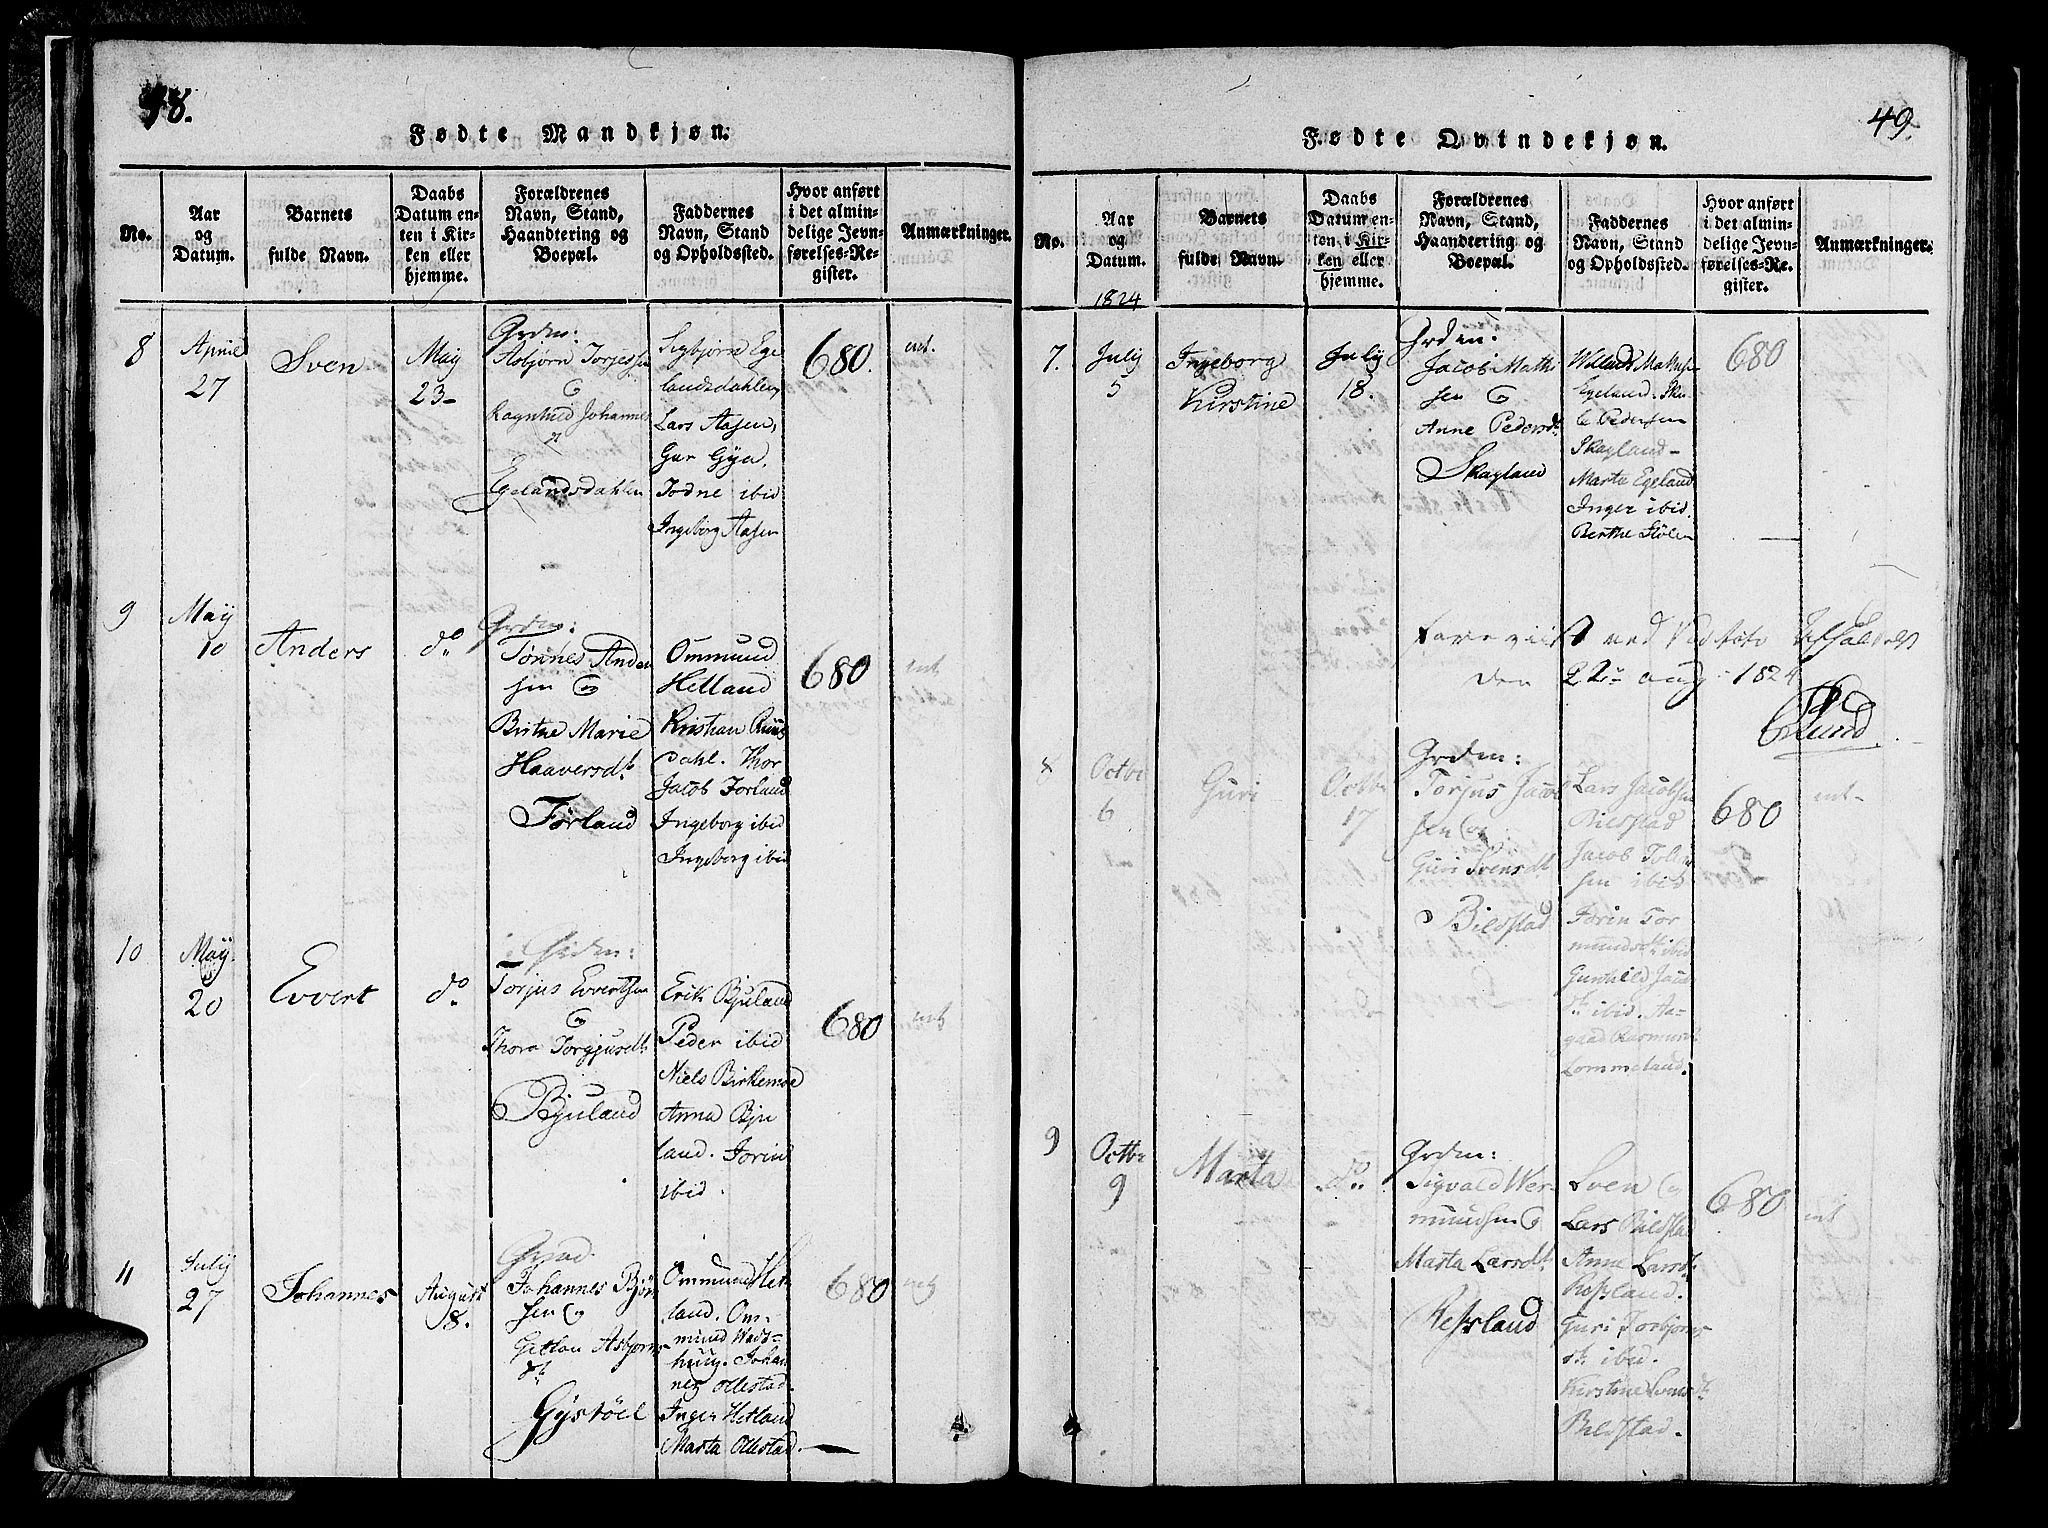 48.
Fødte Mandkjøn.
No.
Aar
og
Datum.
Barnets
fulde Navn.
Daabs
Datum en-
ten i Kir-
ken eller
hjemme.
Forældrenes
Navn, Stand,
Haandtering og
Boepæl.
Faddernes
Navn, Stand
og Opholdssted.
Hvor anført
i det almin-
delige Jevn-
førelses-Re-
gister.
Anmærkninger.
8
April
27
Sven
May
23-
Grdm:
Asbjørn Torjessen
og
Ragnhild Johannes
dt
Egelandsdahlen
Sigbjørn Ege
landsdahlen,
Lars Aasen,
Gur Gya,
Jodne ibid
Ingeborg Aasen
680.
int.
9
May
10
Anders
do
Grdm:
Tønnes Ander
sen og
Birthe Marie
Haaversdt
Førland
Ommund
Helland
Kristian Ruus
dahl. Thor
Jacob Forland
Ingeborg ibid
Ingeborg ibid
680
int
10
May
20
Evvert
do
Grdm:
Torjus Evvertsen
og
Thora Torgjusdt
Bjuland
Erik Bjuland
Peder ibid
Niels Birkemoe
Anna Bju
land. Jorin
ibid.
680
int
11
July
27
Johannes
August
18.
Johannes Bjørn
sen og
Asbjørns
dt
Gystøel
Ommund Het
land. Om-
mund
Johan
nes Ollestad.
Inger Hetland
Marta Ollestad.
680
int
49.
Fødte Qvindekjøn.
No.
Aar
og
Datum.
1824
Barnets
fulde Navn.
Daabs
Datum en-
ten i Kir-
ken eller
hjemme.
Forældrenes
Navn, Stand,
Haandtering og
Boepæl.
Faddernes
Navn, Stand
og Opholdssted.
Hvor anført
i det almin-
delige Jevn-
førelses-Re-
gister.
Anmærkninger.
7.
July
5
Ingeborg
Kirstine
July
18.
Grdm:
Jacob Mathi
sen og
Anne Pedersdt
Skagland
Egeland.
Pedersen
Skagland-
Marta Egeland
Inger ibid.
Berthe Stølen
680
foreviist ved
den 22 aug 1824
Lund
8
Octbr
6
Guri
Octbr
17
Grdm:
Torjus Jacob
sen og
Guri Svensdt
Bilstad
Lars Jacobsen
Bilstad
Jacob
sen ibid
Jorin Tor
mundsdt ibid
Gunhild Jacobs
dt ibid. Aa-
gaad Rasmusdt
Lommeland.
680
int-
9
Octbr
9
Marta
do.
Grdm:
Sigvald Wer-
mundsen og
Marta Larsdt
Refsland
Sven og
Lars Bilstad
Anne Larsdt
Refsland.
Guri Torbjørns
dt ibid.
Kirstine Svensdt
Bilstad.
680
int